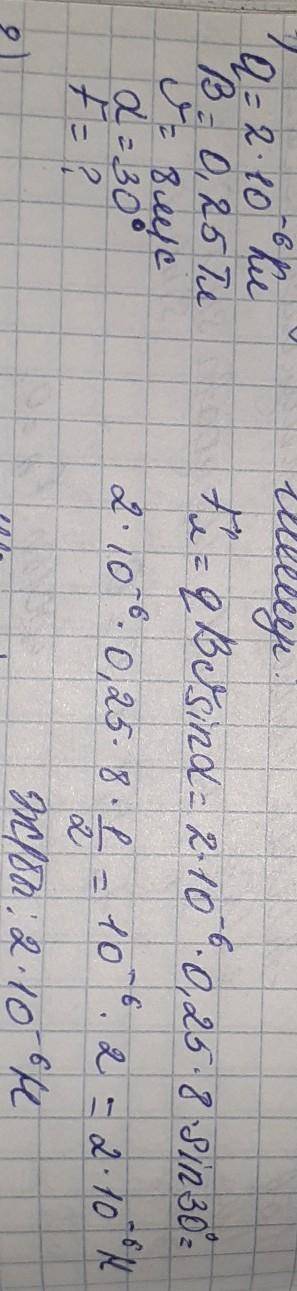 1)
q = 2·10⁻⁶ Кл
B = 0,25 Тл
v = 8 м/с
α = 30°
F = ?
Fл = qBvsinα = 2·10⁻⁶·0,25·8·sin30° =
2·10⁻⁶·0,25·8·1/2 = 10⁻⁶·2 = 2·10⁻⁶ Н
2·10⁻⁶ Н
2)